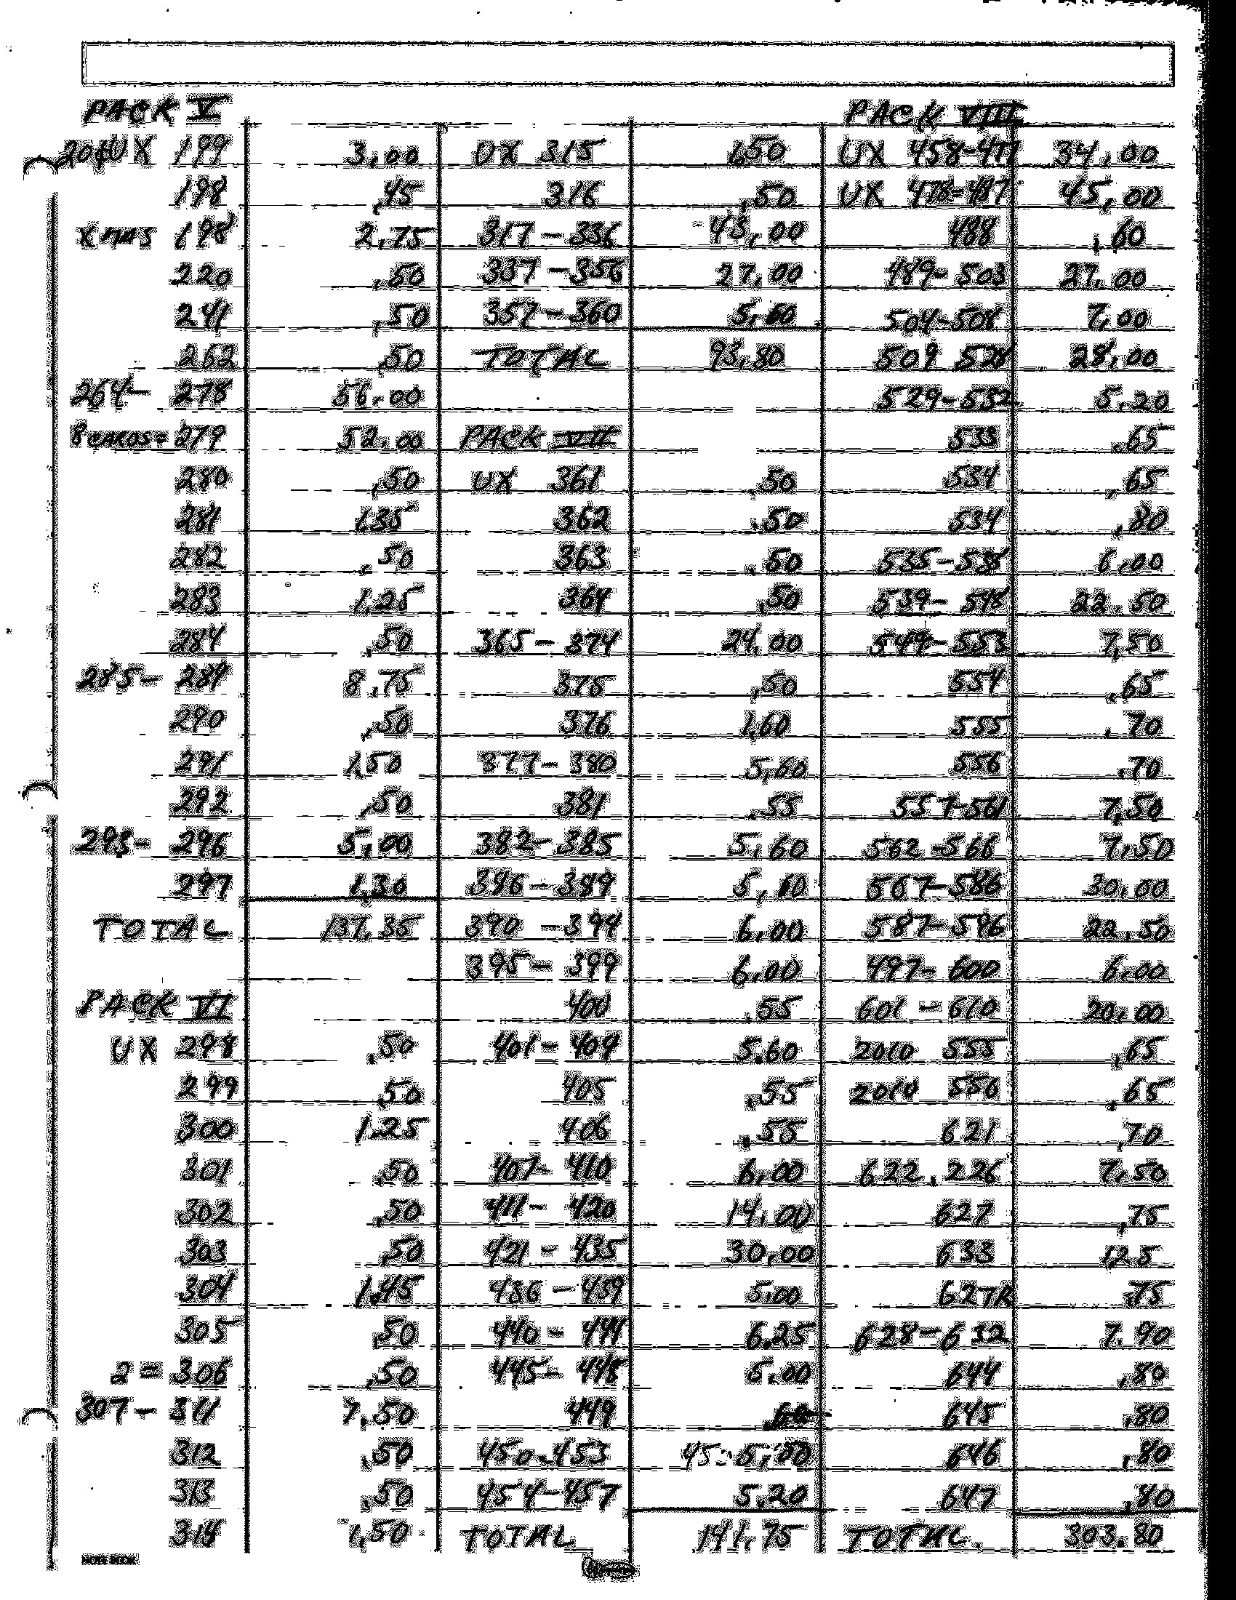 PACK V
20¢UX 199 3.00
198 .45
XMAS 198 2.75
220 .50
241 .50
262 .50
264- 278 56.00
8 CARDS= 279 52.00
280 .50
281 1.35
282 .50
283 1.25
284 .50
285- 289 8.75
290 .50
291 1.50
292 .50
293- 296 5.00
297 1.30
TOTAL 137.35
PACK VI
UX 298 .50
299 .50
300 1.25
301 .50
302 .50
303 .50
304 1.45
305 .50
2 = 306 .50
307- 311 7.50
312 .50
313 .50
314 1.50
UX 315 1.50
316 .50
317-336 43.00
337-356 27.00
357-360 5.60
TOTAL 93.80
PACK VII
UX 361 .50
362 .50
363 .50
364 .50
365-374 24.00
375 .50
376 1.60
377-380 5.60
381 .55
382-385 5.60
386-389 5.60
390-394 6.00
395-399 6.00
400 .55
401-404 5.60
405 .55
406 .55
407-410 6.00
411-420 14.00
421-435 30.00
436-439 5.00
440-444 6.25
445-448 5.00
449
450-453 5.00
454-457 5.20
TOTAL 141.75
PACK VIII
UX 458-477 34.00
UX 478-487 45.00
488 .60
489-503 27.00
504-508 7.00
509 528 28.00
529-532 5.20
533 .65
534 .65
534 .80
535-538 6.00
539-548 22.50
549-553 7.50
554 .65
555 .70
556 .70
557-561 7.50
562-566 7.50
567-586 30.00
587-596 22.50
497-600 6.00
601-610 20.00
2010 555 .65
2010 556 .65
621 .70
622.226 7.50
627 .75
633 12.5
627R .75
628-632 7.90
644 .80
645 .80
646 .80
647 .80
TOTAL. 303.80
NOTE BOOK